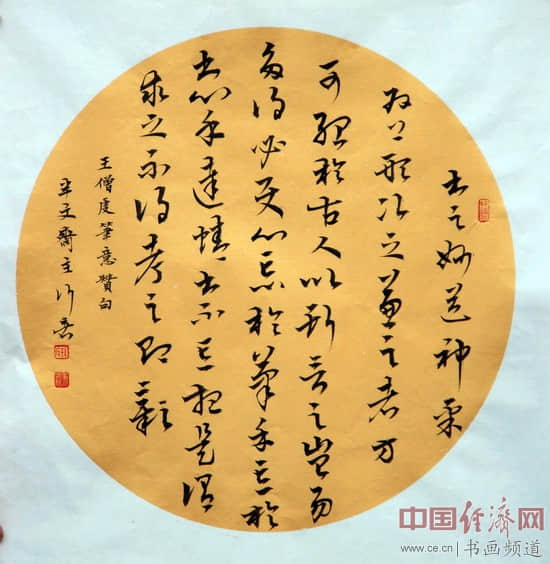 書之妙道神采
為上形次之兼之者方
可紹於古人以斯言之豈易
多得必使心忘於筆手忘於
書心手達情書不忘想是謂
求之不得考之即彰
王僧虔筆意贊句
齋主
中国经濟网
www.ce.cn | 书画频道